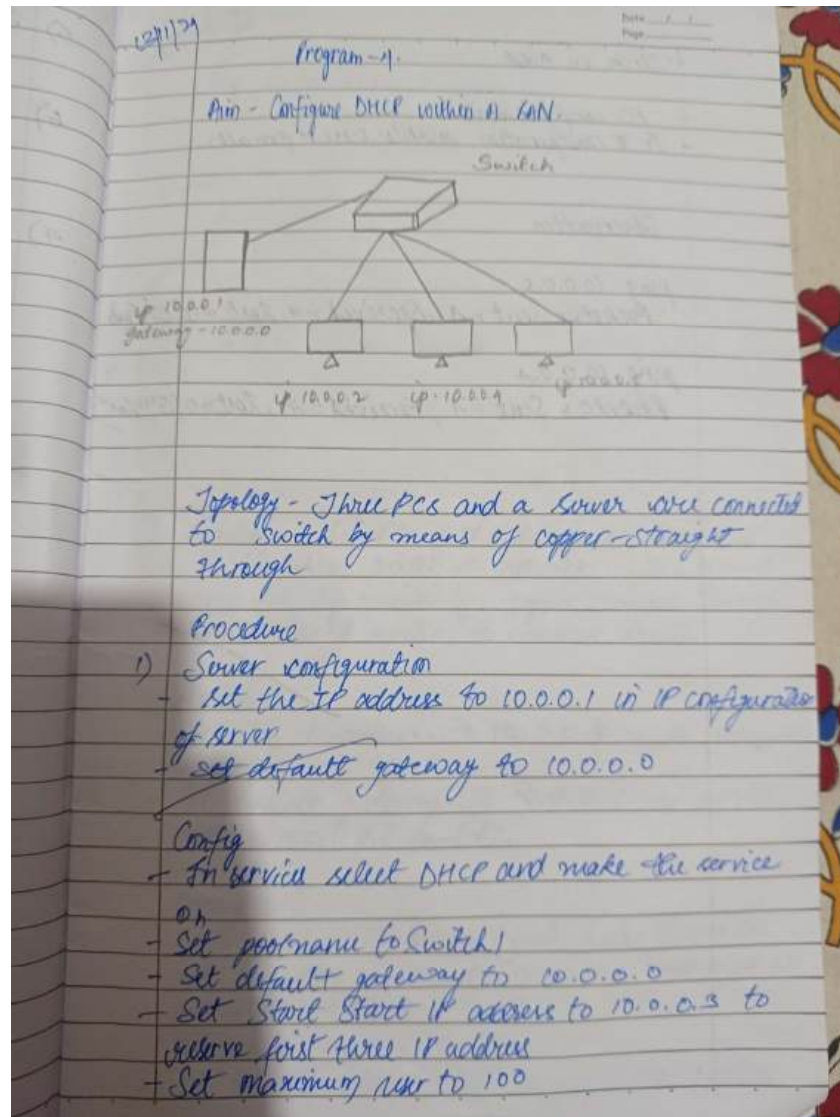 Date / /
Page
Program-4.
Aim - Configure DHCP within a LAN.
Switch
ip 10.0.0.1
gateway - 10.0.0.0
ip 10.0.0.2 ip. 10.0.0.4 ip
Topology - Three PCs and a server are connected
to switch by means of copper-straight
through
Procedure
1) Server configuration
- Set the IP address to 10.0.0.1 in IP configuration
of server
- set default gateway to 10.0.0.0
Config
- In services select DHCP and make the service
on
- Set poolname to Switch1
- Set default gateway to 10.0.0.0
- Set Start Start IP address to 10.0.0.3 to
reserve first three IP address
- Set maximum user to 100